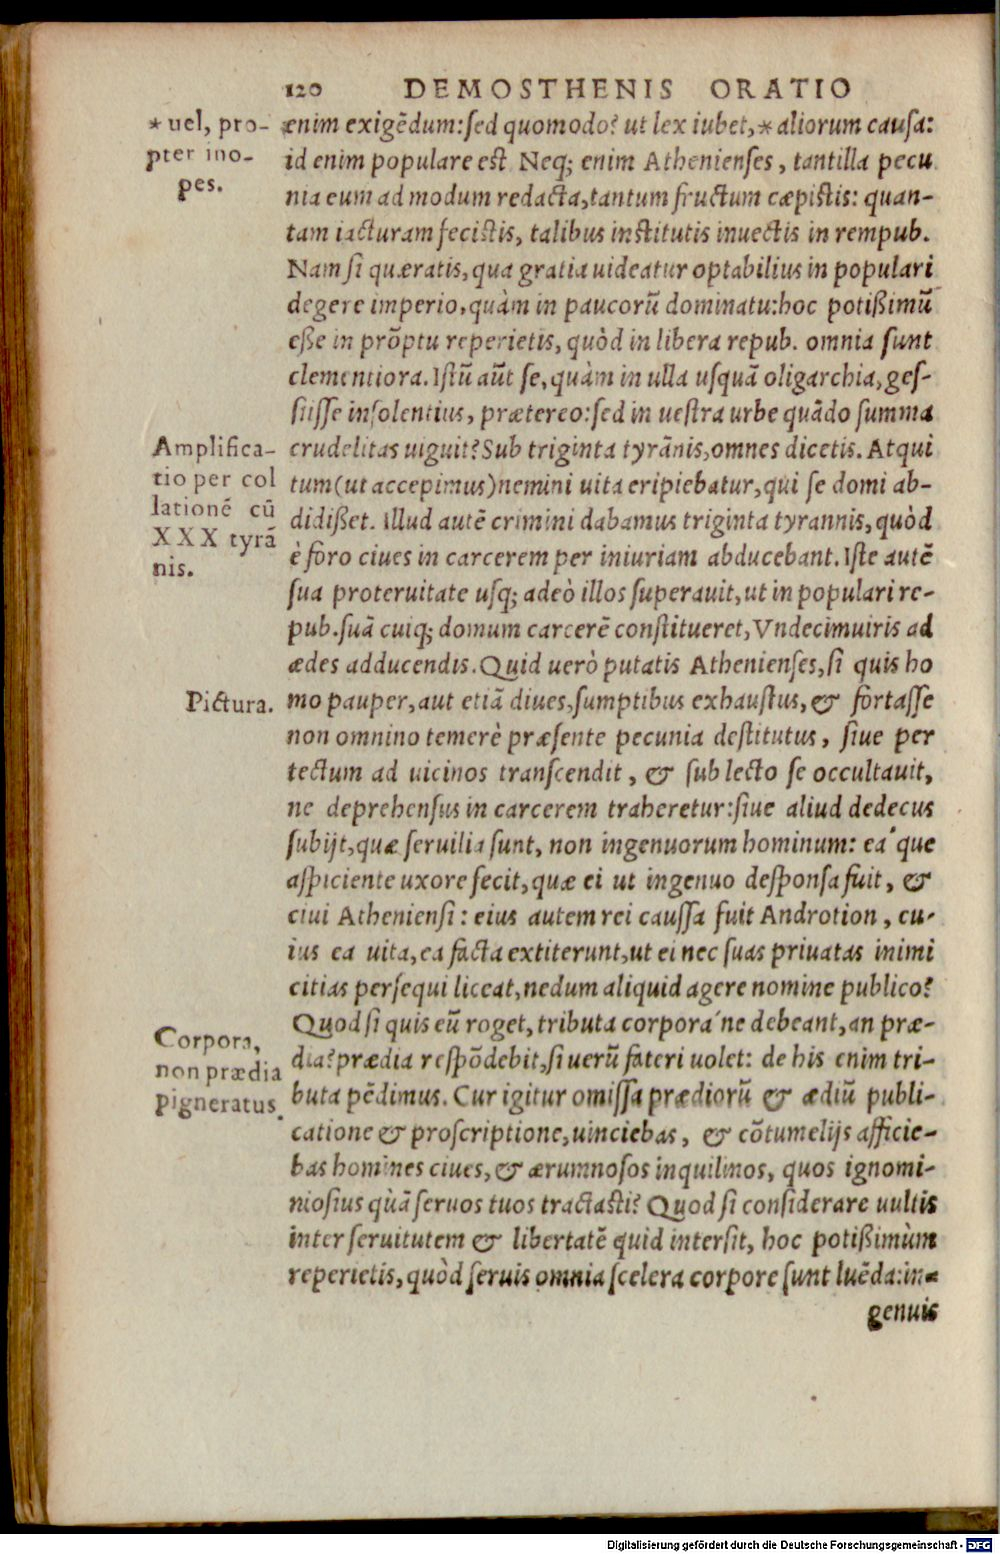 120 DEMOSTHENIS ORATIO
* uel, pro-
pter ino-
pes.
enim exigẽdum: sed quomodo? ut lex iubet, * aliorum causa:
id enim populare est. Neq; enim Athenienses, tantilla pecu
nia eum ad modum redacta, tantum fructum cæpistis: quan-
tam iacturam fecistis, talibus institutis inuectis in rempub.
Nam si quæratis, qua gratia uideatur optabilius in populari
degere imperio, quàm in paucorũ dominatu: hoc potißimũ
eße in prõptu reperietis, quòd in libera repub. omnia sunt
clementiora. Istũ aũt se, quàm in ulla usquã oligarchia, ges-
sisse insolentius, prætereo: sed in uestra urbe quãdo summa
Amplifica-
tio per col
lationẽ cũ
XXX tyrã
nis.
crudelitas uiguit? Sub triginta tyrãnis, omnes dicetis. Atqui
tum (ut accepimus) nemini uita eripiebatur, qui se domi ab-
didißet. Illud autẽ crimini dabamus triginta tyrannis, quòd
è foro ciues in carcerem per iniuriam abducebant. Iste autẽ
sua proteruitate usq; adeò illos superauit, ut in populari re-
pub. suã cuiq; domum carcerẽ constitueret, Vndecimuiris ad
ædes adducendis. Quid uerò putatis Athenienses, si quis ho
Pictura.
mo pauper, aut etiã diues, sumptibus exhaustus, & fortasse
non omnino temerè præsente pecunia destitutus, siue per
tectum ad uicinos transcendit, & sub lecto se occultauit,
ne deprehensus in carcerem traheretur: siue aliud dedecus
subijt, quæ seruilia sunt, non ingenuorum hominum: ea'que
aspiciente uxore fecit, quæ ei ut ingenuo desponsa fuit, &
ciui Atheniensi: eius autem rei caussa fuit Androtion, cu-
ius ea uita, ea facta extiterunt, ut ei nec suas priuatas inimi
citias persequi liceat, nedum aliquid agere nomine publico?
Quod si quis eũ roget, tributa corpora'ne debeant, an præ-
Corpora,
non prædia
pigneratus.
dia? prædia respõdebit, si uerũ fateri uolet: de his enim tri-
buta pẽdimus. Cur igitur omissa prædiorũ & ædiũ publi-
catione & proscriptione, uinciebas, & cõtumelijs afficie-
bas homines ciues, & ærumnosos inquilinos, quos ignomi-
niosius quã seruos tuos tractasti? Quod si considerare uultis
inter seruitutem & libertatẽ quid intersit, hoc potißimùm
reperietis, quòd seruis omnia scelera corpore sunt luẽda: in-
genuis
Digitalisierung gefördert durch die Deutsche Forschungsgemeinschaft - DFG